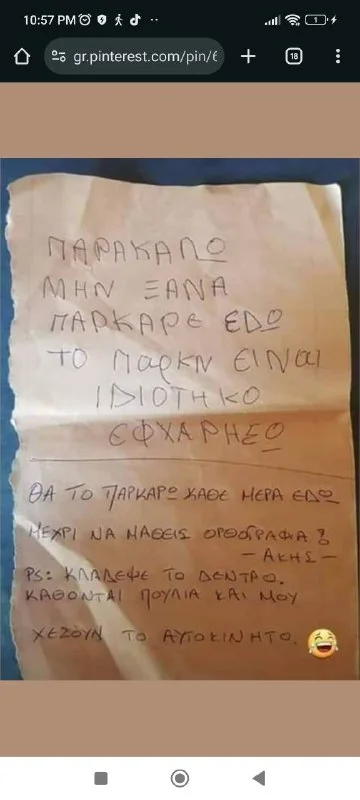 10:57 PM
gr.pinterest.com/pin/6
18
1
ΠΑΡΑΚΑΛΩ
ΜΗΝ ΞΑΝΑ
ΠΑΡΚΑΡΕ ΕΔΩ
ΤΟ ΠαρκΝ ΕΙΝαι
ΙΔΙΟΤΗΚΟ
ΕΦΧΑΡΗΣΟ
ΘΑ ΤΟ ΠΑΡΚΑΡΩ ΚΑΘΕ ΜΕΡΑ ΕΔΩ
ΜΕΧΡΙ ΝΑ ΜΑΘΕΙΣ ΟΡΘΟΓΡΑΦΙΑ!
- ΑΚΗΣ -
PS: ΚΛΑΔΕΨΕ ΤΟ ΔΕΝΤΡΟ.
ΚΑΘΟΝΤΑΙ ΠΟΥΛΙΑ ΚΑΙ ΜΟΥ
ΧΕΖΟΥΝ ΤΟ ΑΥΤΟΚΙΝΗΤΟ. 😂